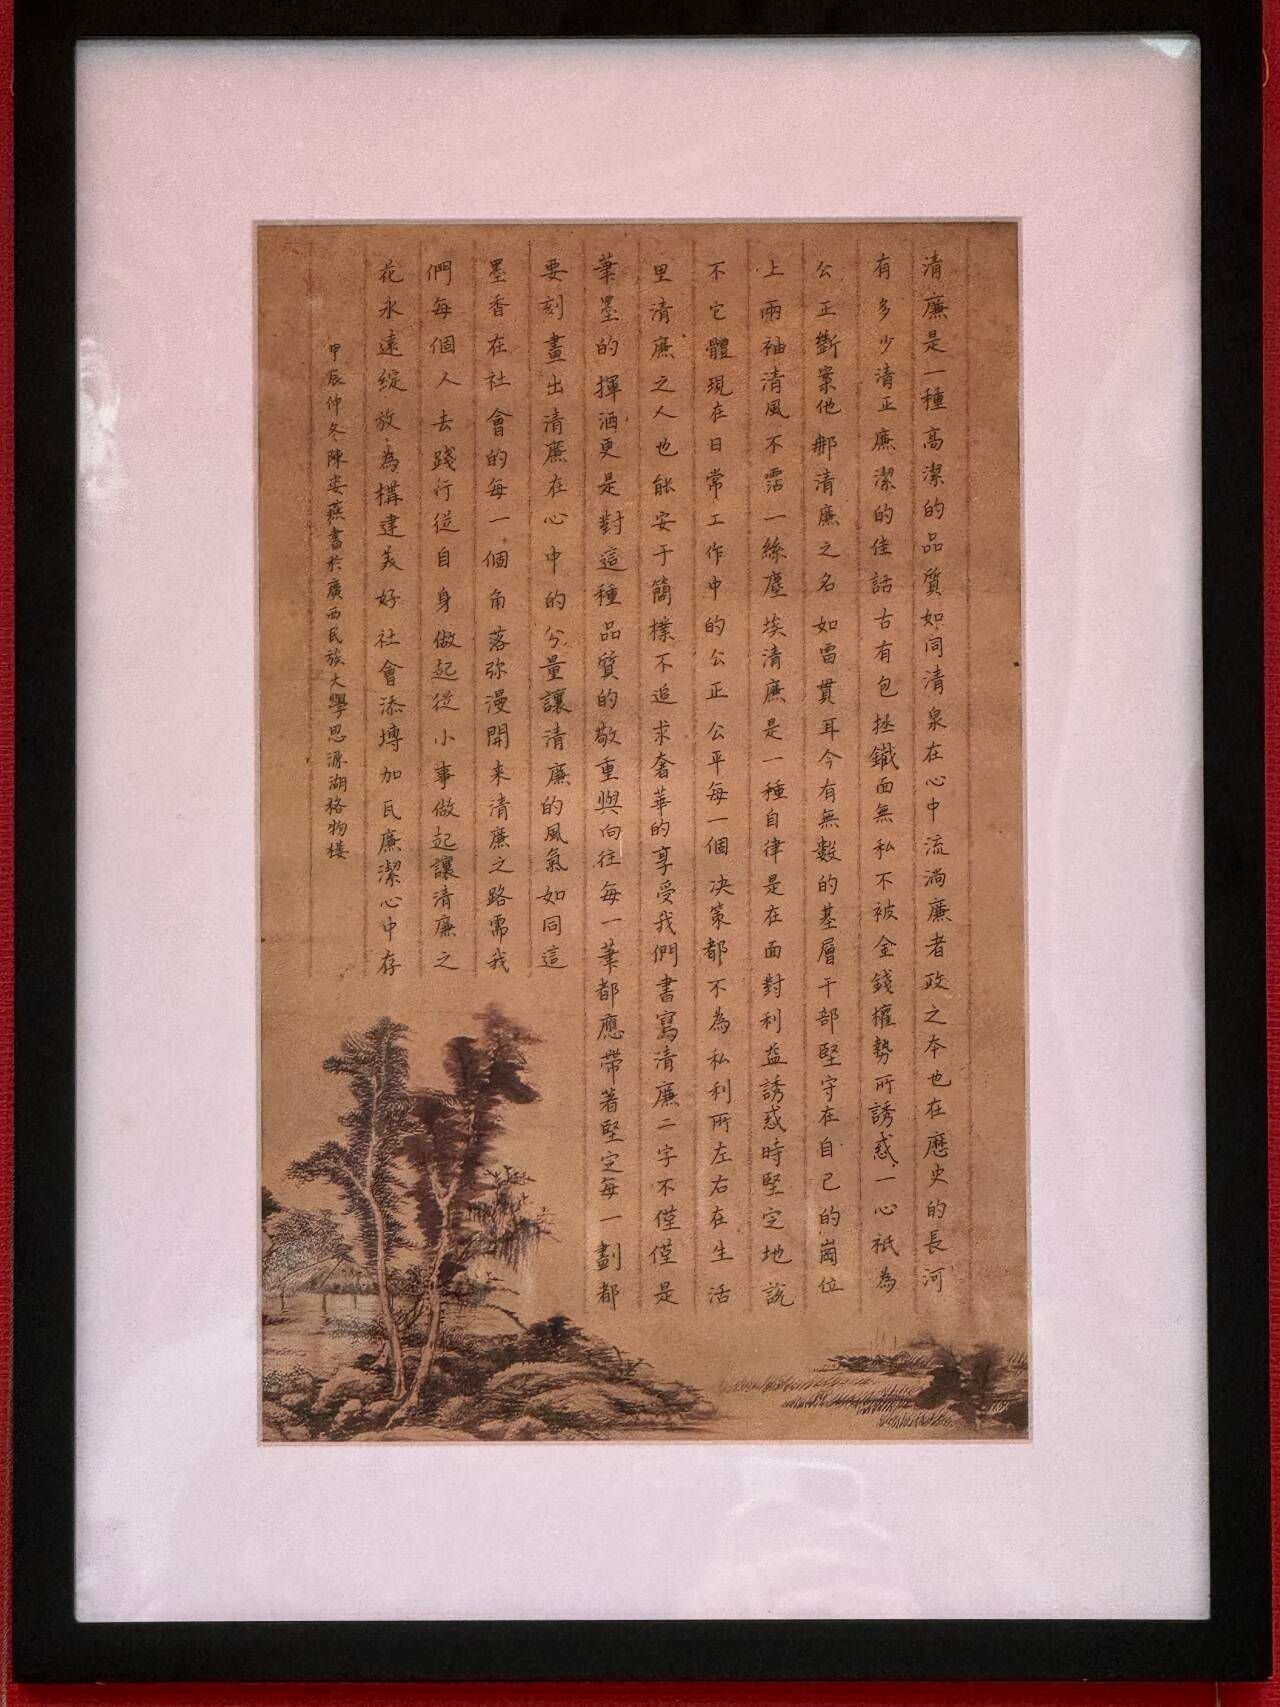 清廉是一種高潔的品質如同清泉在心中流淌廉者政之本也在歷史的長河
有多少清正廉潔的佳話古有包拯鐵面無私不被金錢權勢所誘惑一心祇為
公正斷案他那清廉之名如雷貫耳今有無數的基層干部堅守在自己的崗位
上兩袖清風不霑一絲塵埃清廉是一種自律是在面對利益誘惑時堅定地說
不它體現在日常工作中的公正公平每一個決策都不為私利所左右在生活
里清廉之人也能安于簡樸不追求奢華的享受我們書寫清廉二字不僅僅是
筆墨的揮洒更是對這種品質的敬重與向往每一筆都應帶著堅定每一劃都
要刻畫出清廉在心中的分量讓清廉的風氣如同這
墨香在社會的每一個角落弥漫開来清廉之路需我
們每個人去踐行從自身做起從小事做起讓清廉之
花永遠綻放為構建美好社會添塼加瓦廉潔心中存
甲辰仲冬陳娄燕書於廣西民族大學思源湖格物楼